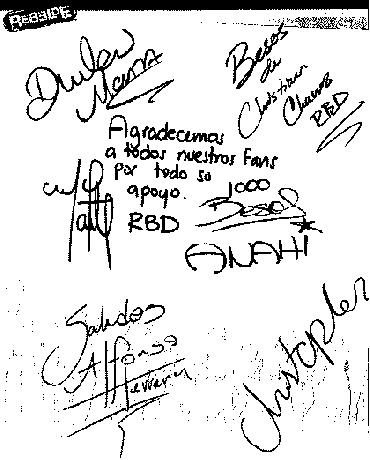 REBELDE
Dulce
Maria
Besos
de
Christian
Chavez
RBD
Agradecemos
a todos nuestros Fans
por todo su
apoyo.
RBD
1000
Besos
ANAHI
Saludos
Alfonso
Herrera
Christopher